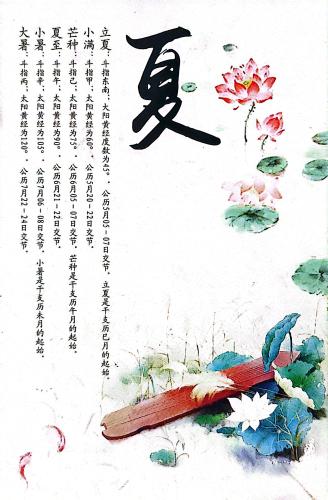 夏
立夏：斗指东南；太阳黄经度数为45°，公历5月05-07日交节。立夏是干支历巳月的起始。
小满：斗指甲；太阳黄经为60°，公历5月20-22日交节。
芒种：斗指己；太阳黄经为75°，公历6月05-07日交节。芒种是干支历午月的起始。
夏至：斗指午；太阳黄经为90°，公历6月21-22日交节。
小暑：斗指辛；太阳黄经为105°，公历7月06-08日交节。小暑是干支历未月的起始。
大暑：斗指丙；太阳黄经为120°，公历7月22-24日交节。